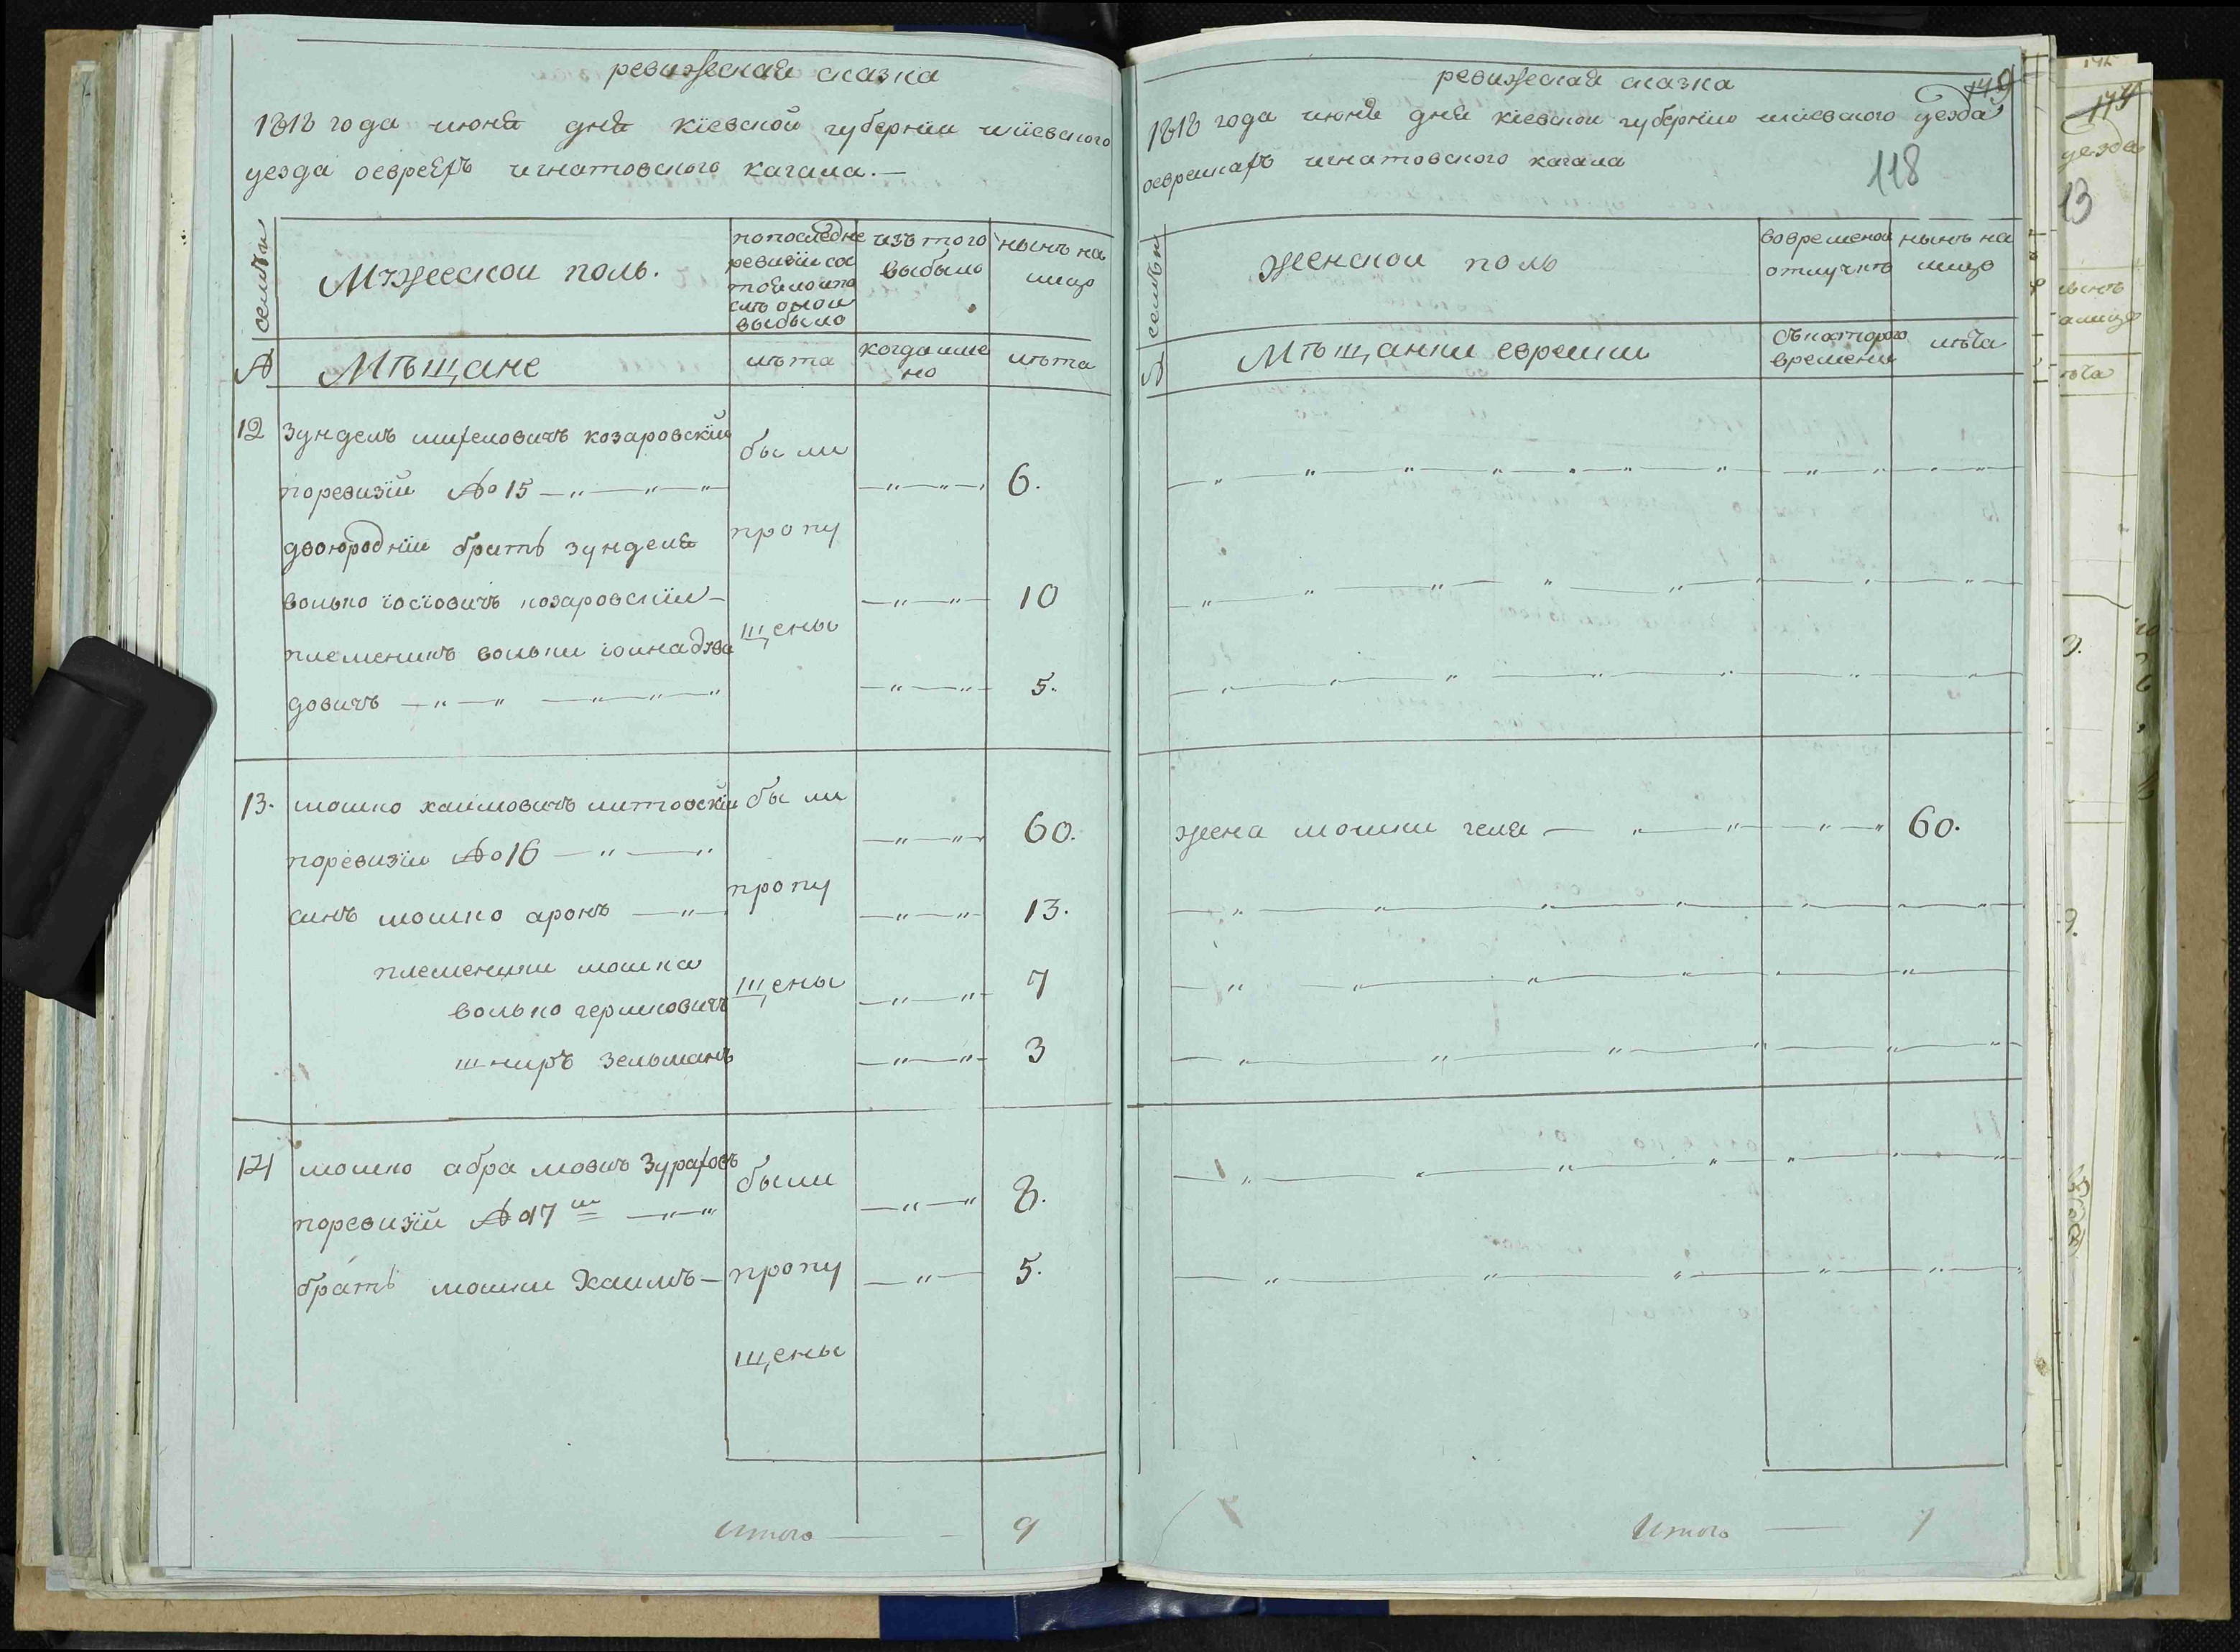 ревизская сказка
1818 года июня дня кіевской губерніи кіевского
уезда оевреяхъ игнатовского кагала.—
№ семьи
Мужескои полъ.
по последне ревизіи состояло и после онои выбыло
изъ того выбыло
нынѣ на лицо
Мѣщане
лѣта
когда имено
лѣта
12 Зунделъ козаровскіи
были
поревизіи №15 6.
двоюродніи братъ зунделя
пропу
волько іосіовичъ козаровскіи 10
племеникъ вольки
щены
довичъ 5.
13. мошко хаимовичъ литовскіи были
поревизіи №16 60.
синъ мошко аронъ 13.
пропу
племеники мошка
волько гершковичъ 7
щены
шниръ зельманъ 3
14 мошко абрамовичъ
были
поревизіи №17 8.
братъ мошки Хаимъ— пропу 5.
щены
Итого 9
ревизская сказка
149
1818 года июня дня кіевскои губерніи кіевского уезда
оеврейкахъ игнатовского кагала
118
№ семьи
женскои полъ
вовременои отлучкѣ
нынѣ на лицо
Мѣщанки еврейки
съ котораго времени
лѣта
жена мошки геля 60.
Итого 1